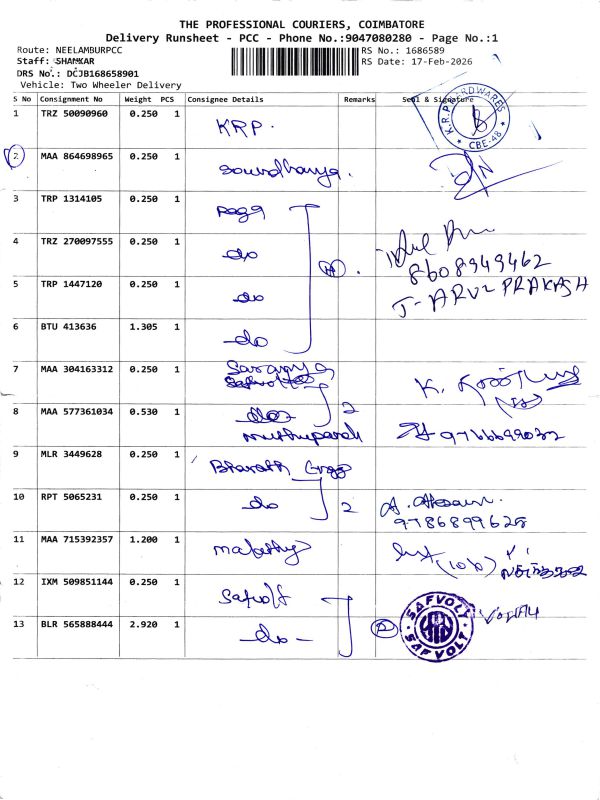 THE PROFESSIONAL COURIERS, COIMBATORE
Delivery Runsheet - PCC - Phone No.:9047080280 - Page No.:1
Route: NEELAMBURPCC
RS No.: 1686589
Staff: SHANKAR
RS Date: 17-Feb-2026
DRS No.: DCJB168658901
Vehicle: Two Wheeler Delivery
S No Consignment No Weight PCS Consignee Details Remarks Seal & Signature
1 TRZ 50090960 0.250 1 KRP.
CBE-48
2 MAA 864698965 0.250 1 Soundharya.
3 TRP 1314105 0.250 1
4 TRZ 270097555 0.250 1 do
8608949462
5 TRP 1447120 0.250 1 do
6 BTU 413636 1.305 1 do
7 MAA 304163312 0.250 1 Saranya
8 MAA 577361034 0.530 1 2
9 MLR 3449628 0.250 1 Bharath
10 RPT 5065231 0.250 1 do 2
9786899628
11 MAA 715392357 1.200 1
12 IXM 509851144 0.250 1 Safvolt
13 BLR 565888444 2.920 1 -do- 2
SAFVOLT
SAFVOLT